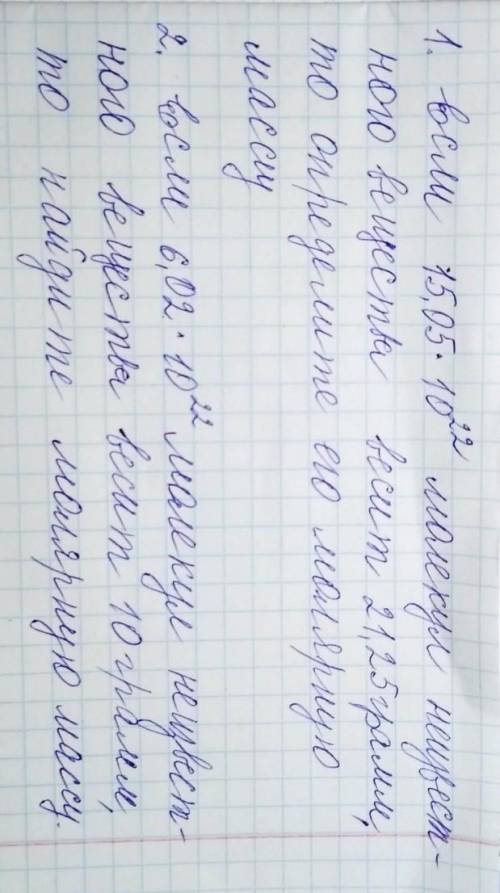 1. Если 15,05·10²² малекул неизвест-
ного вещества весит 21,25 грамм,
то определите его молярную
массу
2. Если 6,02·10²² малекул неизвест-
ного вещества весит 10 грамм,
то найдите молярную массу.